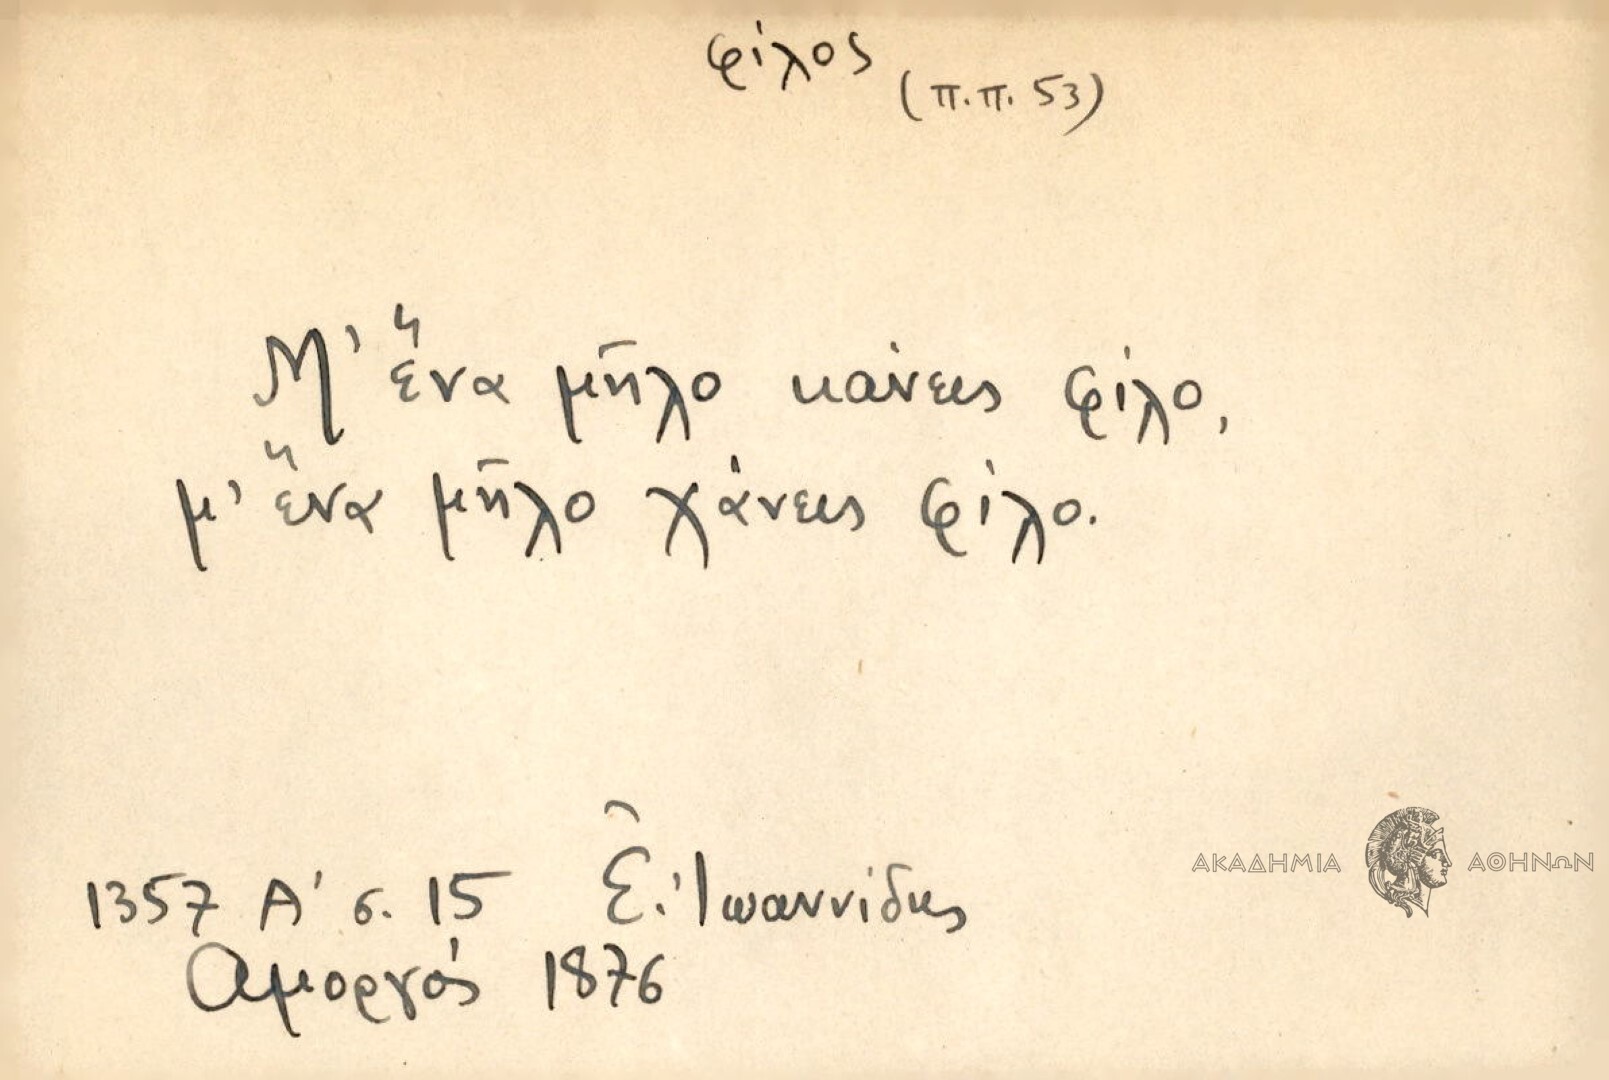 φίλος
(π.π. 53)
Μ' ἕνα μῆλο κάνεις φίλο,
μ' ἕνα μῆλο χάνεις φίλο.
1357 Α' σ. 15 Ἐ. Ἰωαννίδης
Ἀμοργός 1876
ΑΚΑΔΗΜΙΑ ΑΘΗΝΩΝ